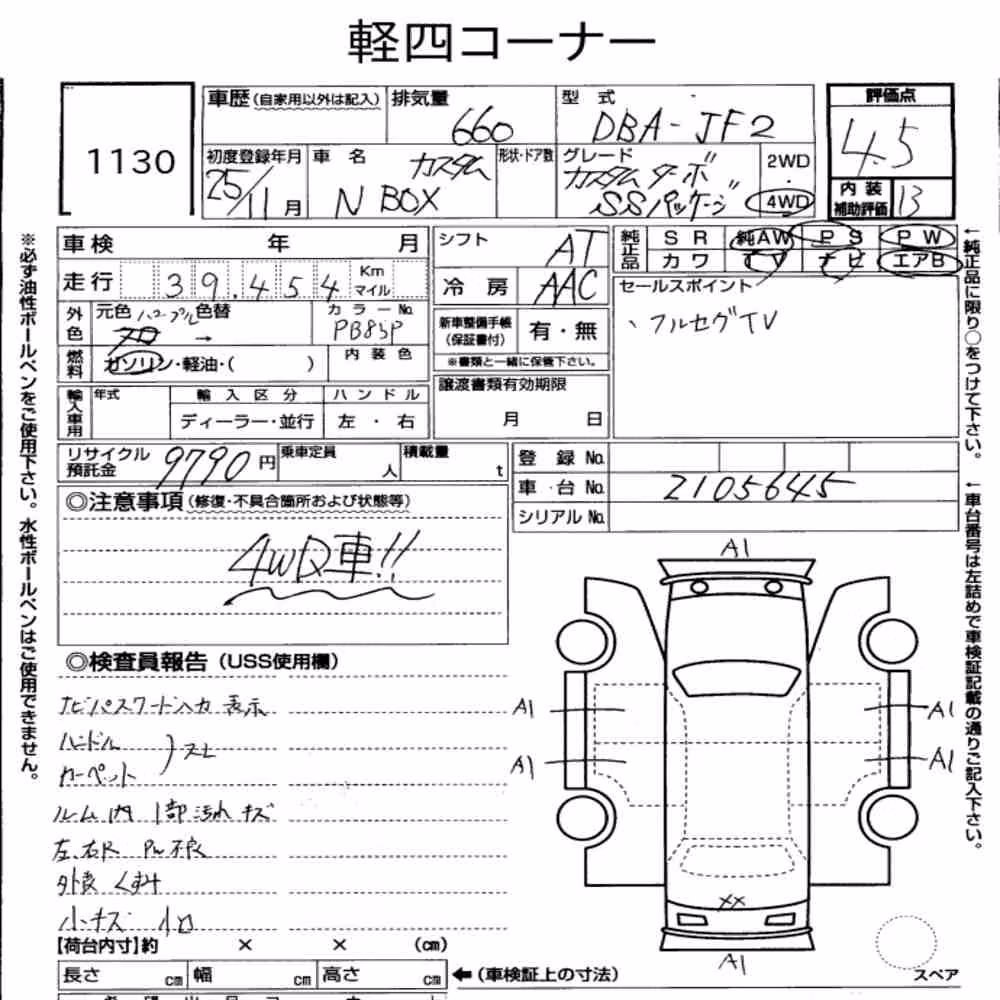 軽四コーナー
1130
車歴(自家用以外は記入) 排気量 660 型式 DBA-JF2 評価点 4.5
初度登録年月 25/11月 車名 N BOX カスタム 形状・ドア数 グレード カスタムターボ SSパッケージ 2WD・4WD 内装補助評価 B
車検 年 月 シフト AT 純正品 SR 純AW PS PW
カワ TV ナビ エアB
走行 39,454 Km マイル 冷房 AAC セールスポイント
、フルセグTV
外色 元色 パープル 色替 → カラーNo. PB85P 新車整備手帳(保証書付) 有・無
※書類と一緒に保管下さい。
燃料 ガソリン・軽油・( ) 内装色
譲渡書類有効期限
月 日
輸入車用 年式 輸入区分 ハンドル
ディーラー・並行 左・右
リサイクル預託金 9790円 乗車定員 人 積載量 t 登録No.
車台No. 2105645
シリアルNo.
◎注意事項(修復・不具合箇所および状態等)
4WD車!!
◎検査員報告(USS使用欄)
ナビパスワード入力表示
ハンドル
カーペット )スレ
ルーム内 1部汚れ キズ
左、右R PW不良
外装 くすみ
小キズ 凹
A1
A1 A1
A1 A1
XX
A1
【荷台内寸】約 × × (cm)
長さ cm 幅 cm 高さ cm ←(車検証上の寸法)
スペア
※必ず油性ボールペンをご使用下さい。水性ボールペンはご使用できません。
←純正品に限り○をつけて下さい。
←車台番号は左詰めで車検証記載の通りご記入下さい。